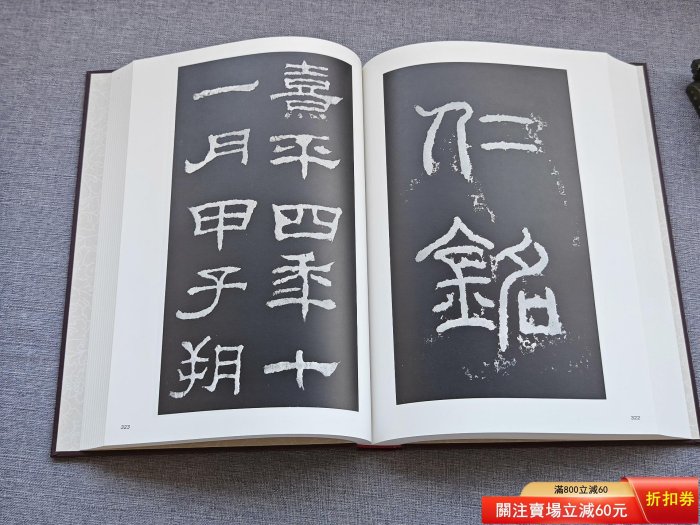 仁銘
322
熹平四年十
一月甲子朔
323
滿800立減60
關注賣場立減60元
折扣券